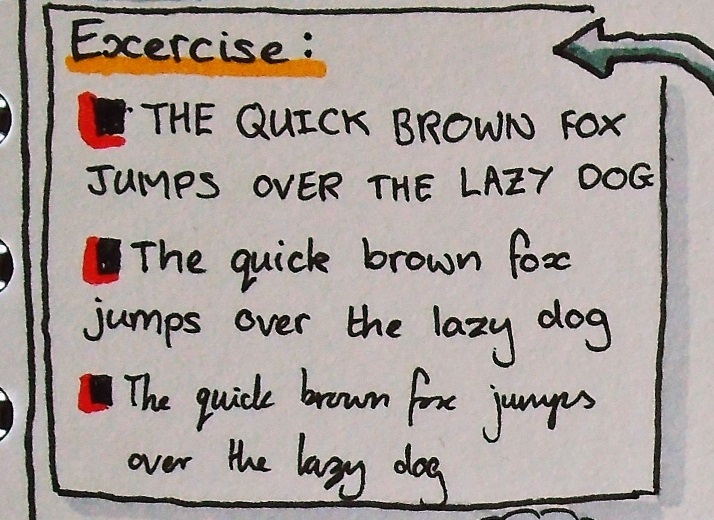 Excercise:
THE QUICK BROWN FOX
JUMPS OVER THE LAZY DOG
The quick brown fox
jumps over the lazy dog
The quick brown fox jumps
over the lazy dog